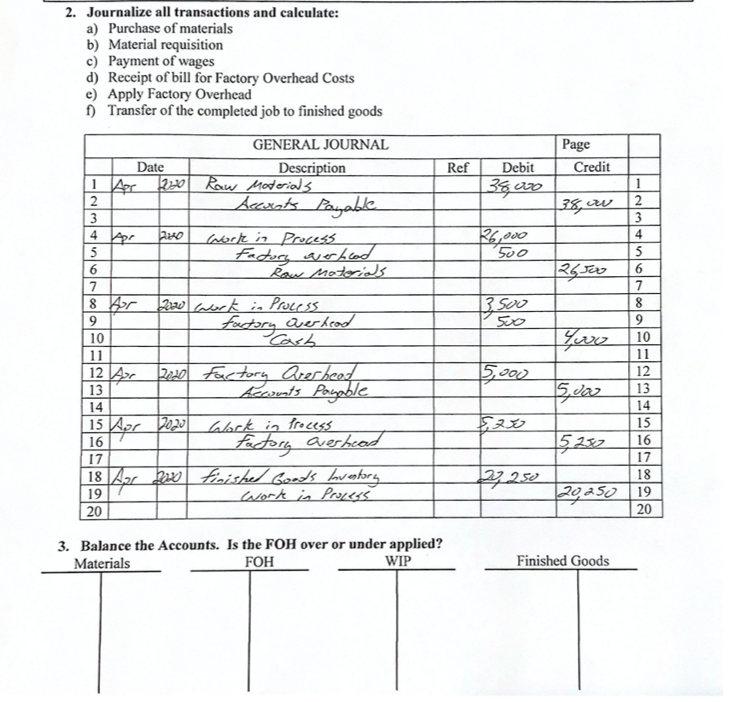 2. Journalize all transactions and calculate:
a) Purchase of materials
b) Material requisition
c) Payment of wages
d) Receipt of bill for Factory Overhead Costs
e) Apply Factory Overhead
f) Transfer of the completed job to finished goods
GENERAL JOURNAL Page
Date Description Ref Debit Credit
1 Apr 2020 Raw Materials 38,000 1
2 Accounts Payable 38,000 2
3 3
4 Apr 2020 Work in Process 26,000 4
5 Factory overhead 500 5
6 Raw Materials 26,500 6
7 7
8 Apr 2020 Work in Process 3,500 8
9 Factory Overhead 500 9
10 Cash 4,000 10
11 11
12 Apr 2020 Factory Overhead 5,000 12
13 Accounts Payable 5,000 13
14 14
15 Apr 2020 Work in Process 5,250 15
16 Factory Overhead 5,250 16
17 17
18 Apr 2020 Finished Goods Inventory 18
19 Work in Process 20,250 19
20 20
3. Balance the Accounts. Is the FOH over or under applied?
Materials FOH WIP Finished Goods